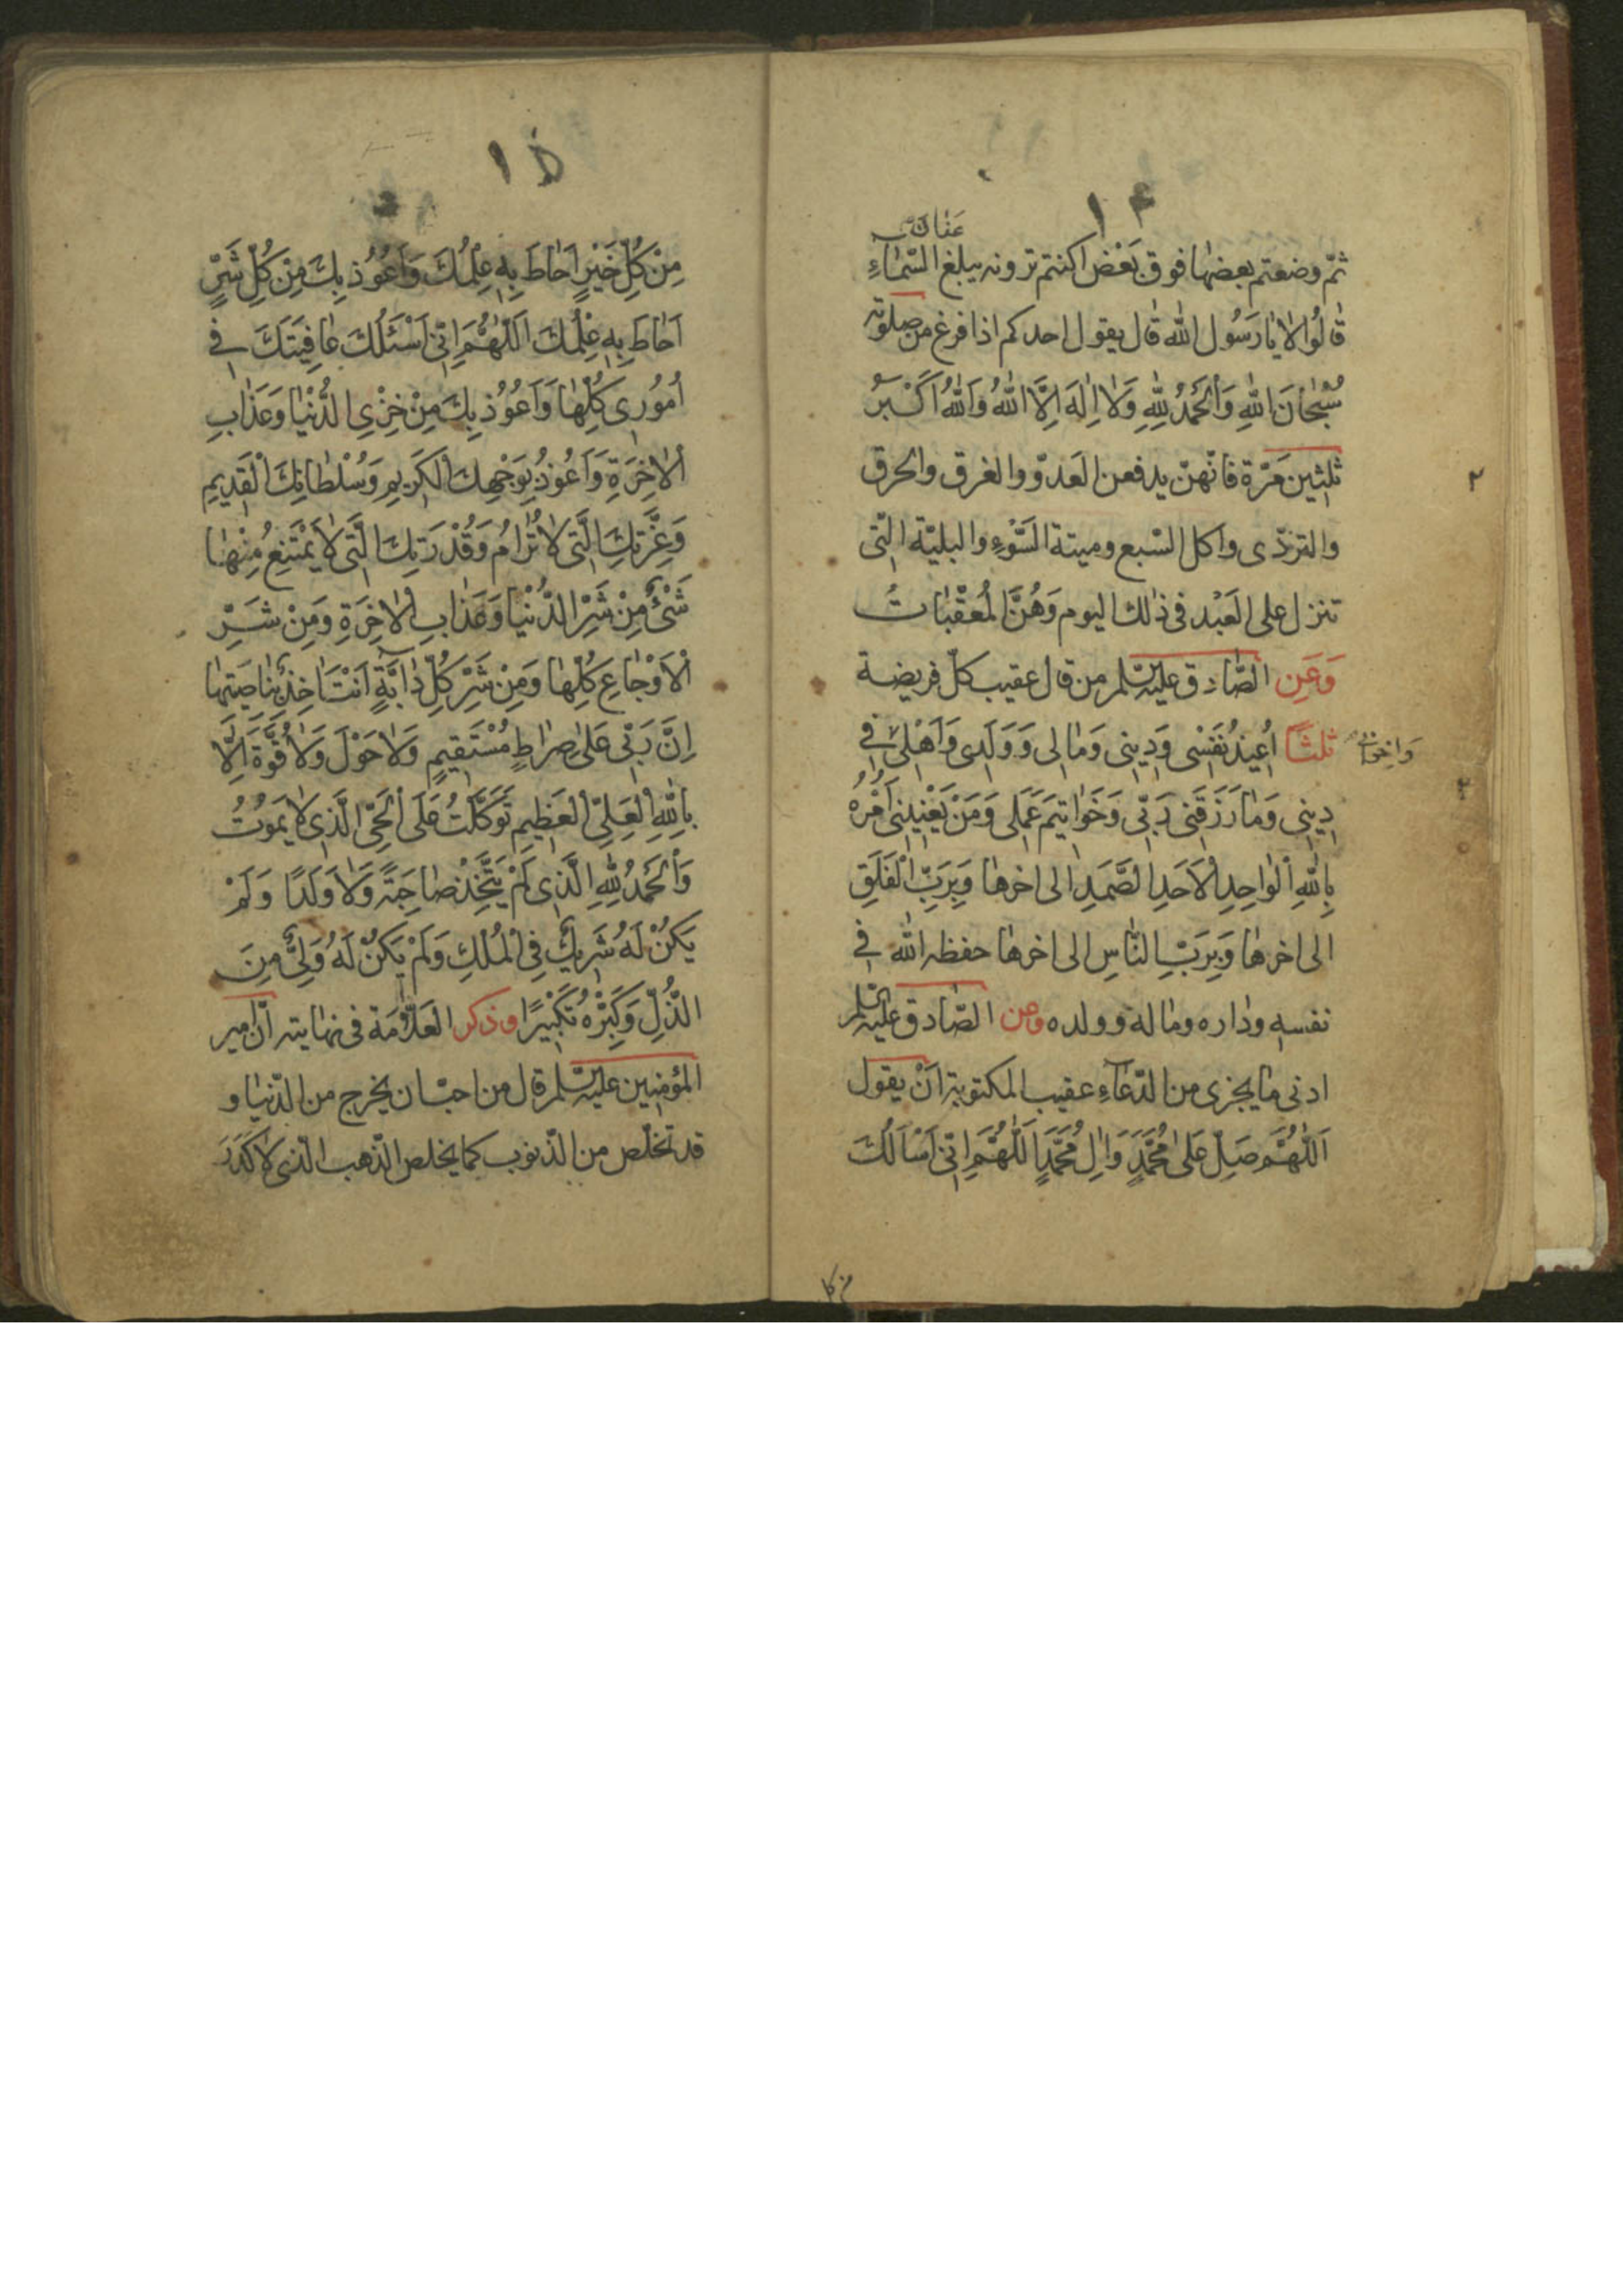 ١٤
عنان
ثمّ وضعتم بعضها فوق بَعْض اكنتم ترونه يبلغ السّماءِ
قالُوا لا يا رَسُول الله قال يقول احدكم اذا فرغ من صلوته
سُبْحانَ اللهِ وَالْحَمْدُ لِلّٰهِ وَلا اِلٰهَ اِلَّا اللهُ وَاللهُ اَكْبَرُ
ثلثين مَرّة فانّهنّ يدفعن العَدوّ والغرق والحرق
والتردّى واكل السّبع وميتة السَّوْءِ والبليّة الّتى
تنزل على العَبْد فى ذلك اليوم وَهُنَّ الْمُعَقِّباتُ
وَعَنِ الصّادق عليه السّلم من قال عقيب كلّ فريضة
ثلثاً اُعيذُ نَفْسى وَدِينى وَمالى وَوَلَدى وَاَهْلى فى
وَاِخْوانى
دِينى وَما رَزَقَنى رَبّى وَخَواتيمَ عَمَلى وَمَنْ يَعْنِينى اَمْرُهُ
بِاللهِ الْواحِدِ الْاَحَدِ الصَّمَدِ الى اخرها وَبِرَبِّ الْفَلَقِ
الى اخرها وَبِرَبِّ النّاسِ الى اخرها حفظه الله فى
نفسه وداره وماله وولده ومن الصّادق عليه السّلم
ادنى ما يجزى من الدّعاءِ عقيب المكتوبة اَنْ يقول
اَللّٰهُمَّ صَلِّ عَلى مُحَمَّدٍ وَالِ مُحَمَّدٍ اَللّٰهُمَّ اِنّى اَسْاَلُكَ
١٥
مِنْ كُلِّ خَيْرٍ اَحاطَ بِهِ عِلْمُكَ وَاَعُوُذ بِكَ مِنْ كُلِّ شَرٍّ
اَحاطَ بِهِ عِلْمُكَ اَللّٰهُمَّ اِنّى اَسْئَلُكَ عافِيَتَكَ فى
اُمُورى كُلِّها وَاَعُوُذ بِكَ مِنْ خِزْىِ الدُّنْيا وَعَذابِ
الْاخِرَةِ وَاَعُوذُ بِوَجْهِكَ الْكَريمِ وَسُلْطانِكَ الْقَديمِ
وَعِزَّتِكَ الَّتى لا تُرامُ وَقُدْرَتِكَ الَّتى لا يَمْتَنِعُ مِنْها
شَىْءٌ مِنْ شَرِّ الدُّنْيا وَعَذابِ الْاخِرَةِ وَمِنْ شَرِّ
الْاَوْجاعِ كُلِّها وَمِنْ شَرِّ كُلِّ دابَّةٍ اَنْتَ اخِذٌ بِناصِيَتِها
اِنَّ رَبّى عَلى صِراطٍ مُسْتَقيمٍ وَلا حَوْلَ وَلا قُوَّةَ اِلّا
بِاللهِ الْعَلِىِّ الْعَظيمِ تَوَكَّلْتُ عَلَى الْحَىِّ الَّذى لا يَمُوتُ
وَالْحَمْدُ لِلّٰهِ الَّذى لَمْ يَتَّخِذْ صاحِبَةً وَلا وَلَدًا وَلَمْ
يَكُنْ لَهُ شَريكٌ فِى الْمُلْكِ وَلَمْ يَكُنْ لَهُ وَلِىٌّ مِنَ
الذُّلِّ وَكَبِّرْهُ تَكْبيرًا وذكر العَلّامَة فى نهايته اَنّ امير
المؤمنين عليه السّلم قال من احبّ ان يخرج من الدّنيا و
قد تخلّص من الذّنوب كما يخلص الذّهب الّذى لا كَدَرَ